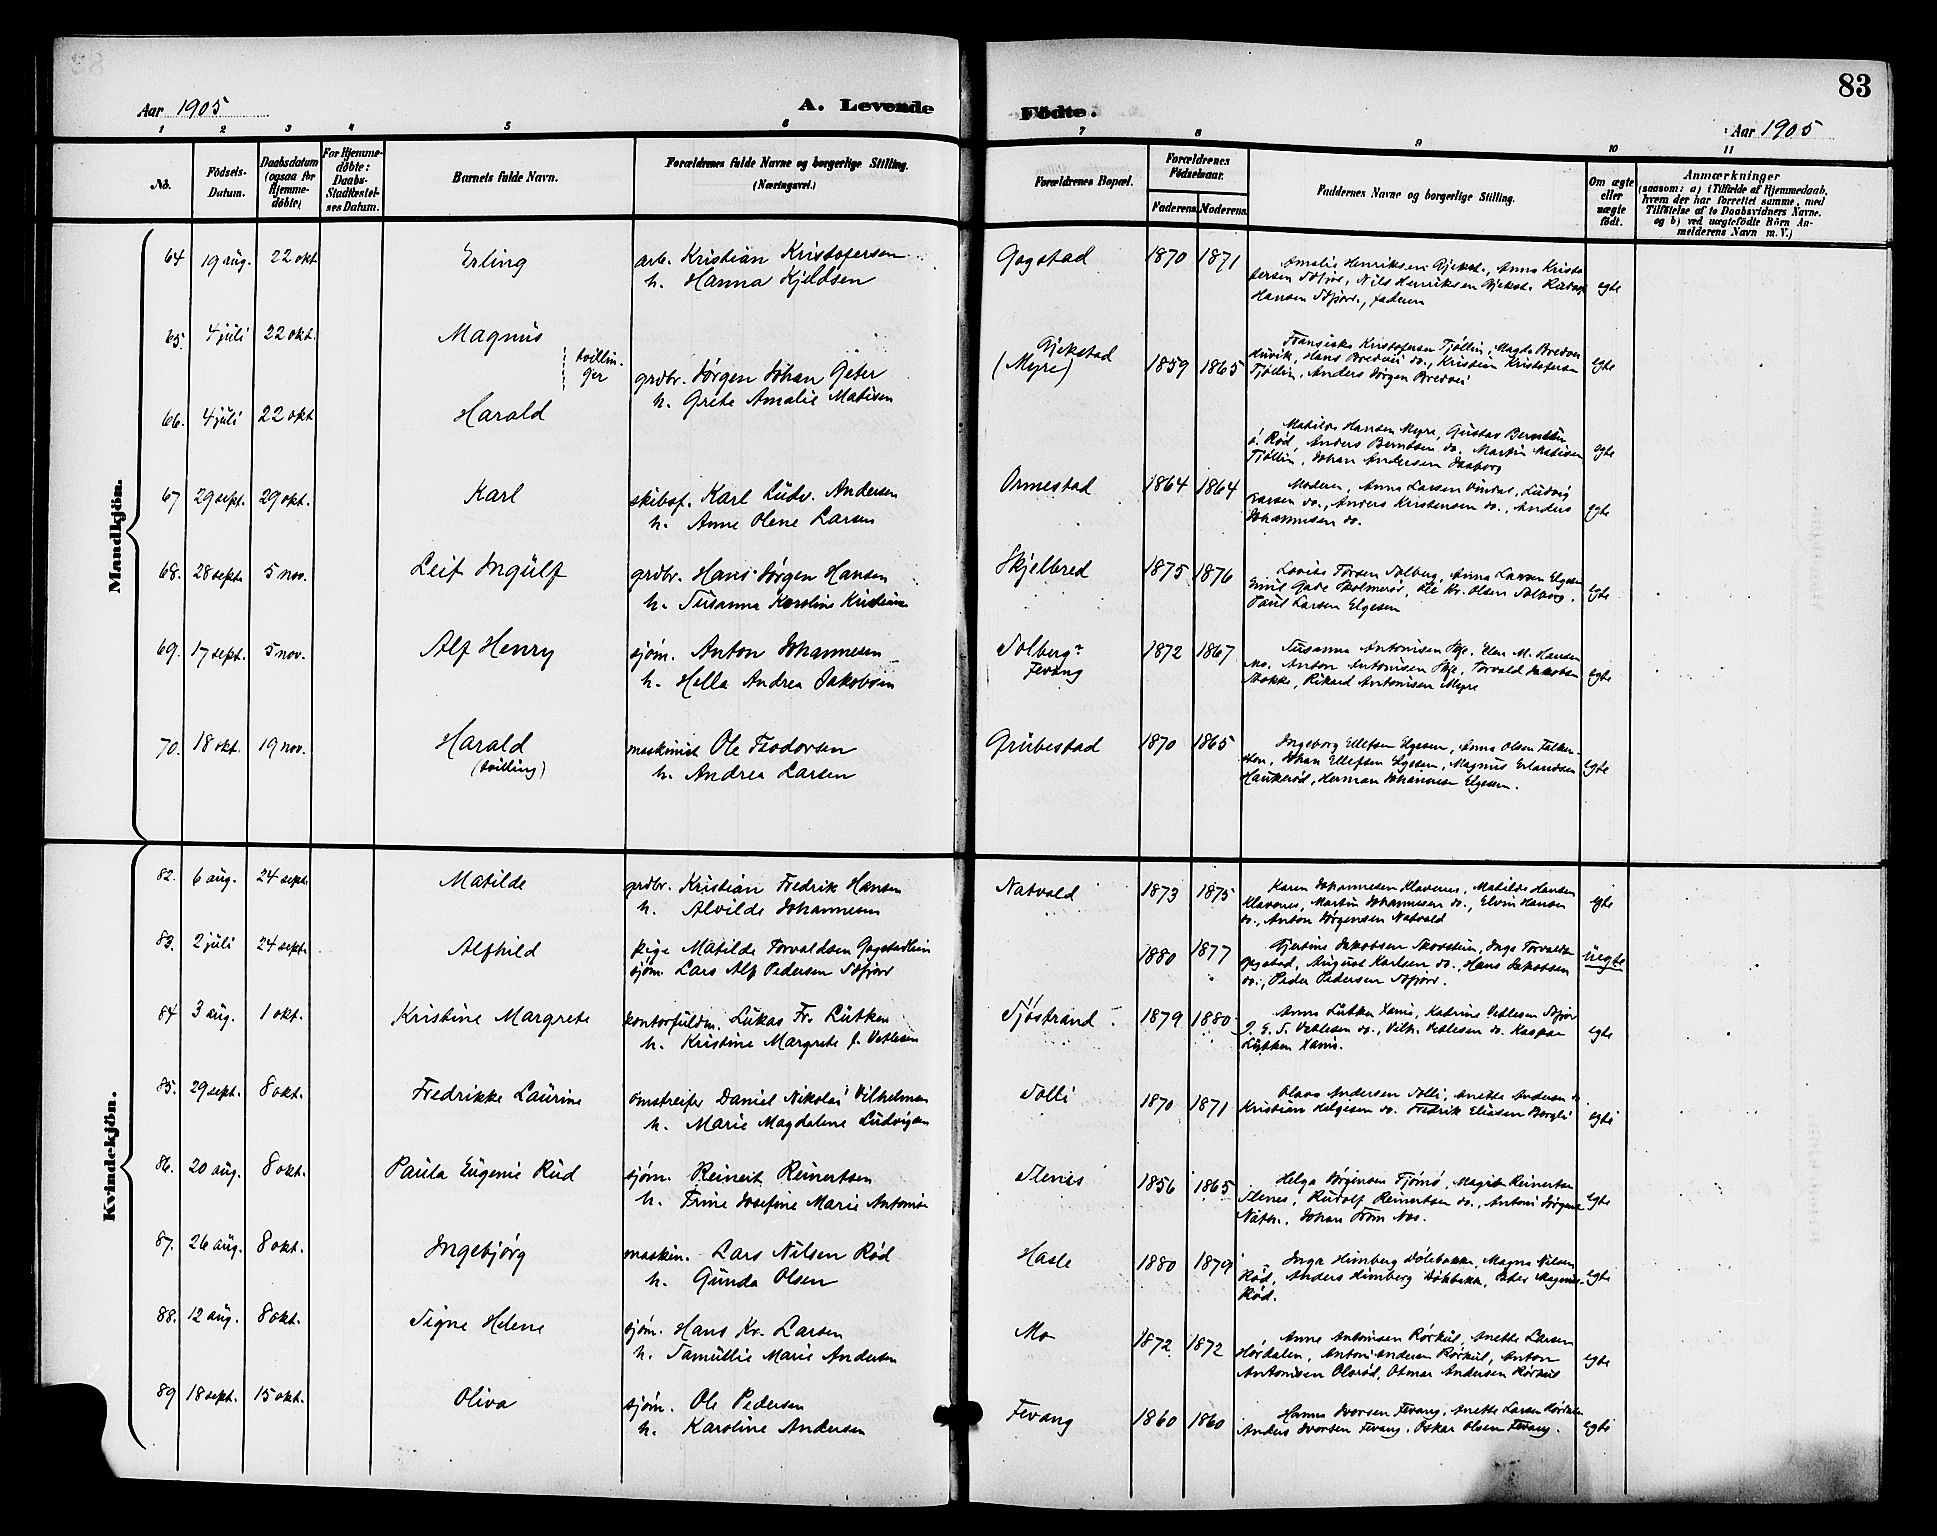 83
Aar 1905
A. Levende Fødte.
Aar 1905
1 2 3 4 5 6 7 8 9 10 11
No.
Fødsels-Datum.
Daabsdatum (ogsaa for Hjemme-døbte)
For Hjemme-døbte: Daabs-Stadfæstel-ses Datum.
Barnets fulde Navn.
Forældrenes fulde Navne og borgerlige Stilling. (Næringsvei.)
Forældrenes Bopæl.
Forældrenes Fødselsaar.
Faderens. Moderens.
Faddernes Navne og borgerlige Stilling.
Om ægte eller uægte født.
Anmærkninger
(saasom: a) i Tilfælde af Hjemmedaab,
hvem der har forrettet samme, med
Tilføielse af to Daabsvidners Navne.
og b) ved uægtefødte Børn An-
melderens Navn m. V.)
Mandkjøn.
64 19 aug. 22 okt. Erling arb. Kristian Kristofersen Gogstad 1870 1871 Amalie Henriksen Gjekst., Anna Kristo
h. Hanna Kjeldsen fersen Sfjor., Nils Henriksen Gjekst. egte
Hansen Sfjor., faderen
65. 4 juli 22 okt. Magnus Gjekstad Fransiska Kristofersen Tjølling, Magda Bredvei
tvillin-ger grdbr. Jørgen Johan Peter (Myre) 1859 1865 Huvik, Hans Bredvei do., Kristian Kristofersen egte
h. Grete Amalie Matisen Tjølling, Anders Jørgen Bredvei
66. 4 juli 22 okt Harald Matilde Hansen Myre, Gustav Berntsen
Rød, Anders Berntsen do. Martin Matisen egte
Tjølling, Johan Andersen
67 29 sept. 29 okt. Karl skibsf. Karl Ludv. Andersen Ormestad 1864 1864 Moderen, Anna Larsen Vindal, Ludvig
h. Anne Olene Larsen Larsen do., Anders Kristensen do., Anders egte
Johannesen do.
68. 28 sept. 5 nov. Leif Ingulf grdbr. Hans Jørgen Hansen Skjelbred 1875 1876 Lovise Larsen Elgesem
h. Susanna Karoline Kristine Emil Gade Holmerød, Ole Kr. Olsen Solberg, egte
Paul Larsen Elgesem
69. 17 sept. 5 nov. Alf Henry sjøm. Anton Johannesen Solberg 1872 1867 Susanna Antonisen Skje, Elen M. Hansen
h. Hella Andrea Jakobsen Fevang Mo. Anton Antonisen Skje, Torvald Jakobsen egte
Stokke, Rikard Antonisen Myre
70. 18 okt. 19 nov. Harald maskinist Ole Teodorsen Grubestad 1870 1865 Ingeborg Ellefsen Elgesem, Anna Olsen Falken-
(tvilling) h. Andrea Larsen sten, Johan Ellefsen Elgesem, Magnus Erlandsen egte
Haukerød, Herman Johannesen Elgesem.
Kvindekjøn.
82. 6 aug. 24 sept. Matilde grdbr. Kristian Fredrik Hansen Natvald 1873 1875 Karen Johannesen Klavenes, Matilde Hansen
h. Alvilde Johannesen Klavenes, Martin Johannesen do., Elvin Hansen egte
do., Anton Jørgensen Natvald
83. 2 juli 24 sept. Alfhild pige Matilde Torvaldsen Gogstadhein 1880 1877 Gjertine Jakobsen Inga Torvalds.
sjøm. Lars Alf Pedersen Sfjor Gogstad, August Karlsen do., Hans Jakobsen uegte
do., Peder Pedersen Sfjor.
84 3 aug. 1 okt. Kristine Margrete kontorfuldm. Lukas Fr. Lütken Sjøstrand 1879 1880 Anna Lütken Xania, Katrine Vetlesen Sfjor
h. Kristine Margrete f. Vetlesen Vetlesen do., Vilh. Vetlesen do. Kaspar egte
Lütken Xania.
85. 29 sept. 8 okt. Fredrikke Laurine omstreifer Daniel Nikolai Vilhelmsen Solli 1870 1871 Olava Andersen Solli, Anette Andersen do
h. Marie Magdalene Ludvigsen Kristian Helgesen do. Fredrik Eliasen Bergli egte
86. 20 aug. 8 okt. Paula Eugenie Rud sjøm. Reinert Reinertsen Stenes 1856 1865 Helga Jørgensen Tjømø, Magda Reinertsen
h. Trine Josefine Marie Antonis. Stenes, Rudolf Reinertsen do., Antoni Jørgens. egte
Natv., Johan From Nes.
87. 26 aug. 8 okt. Ingebjørg maskin. Lars Nilsen Rød Hasle 1880 1879 Inga Himberg Dølebakke, Magna Nilsen
h. Gunda Olsen Rød, Anders Himberg Peder Magnus. egte
Rød.
88. 12 aug. 8 okt. Signe Helene sjøm. Hans Kr. Larsen Mo 1872 1872 Anne Antonisen Rørkul, Anette Larsen
h. Samuline Marie Andersen Hørdalen, Antoni Andersen Rørkul, Anton egte
Antonisen Olsrød, Otmar Andersen Rørkul
89 18 sept. 15 okt. Oliva sjøm. Ole Pedersen Fevang 1860 1860 Hanna Iversen Fevang, Anette Larsen Hørdalen
h. Karoline Andersen Anders Iversen Fevang, Oskar Olsen Fevang. egte